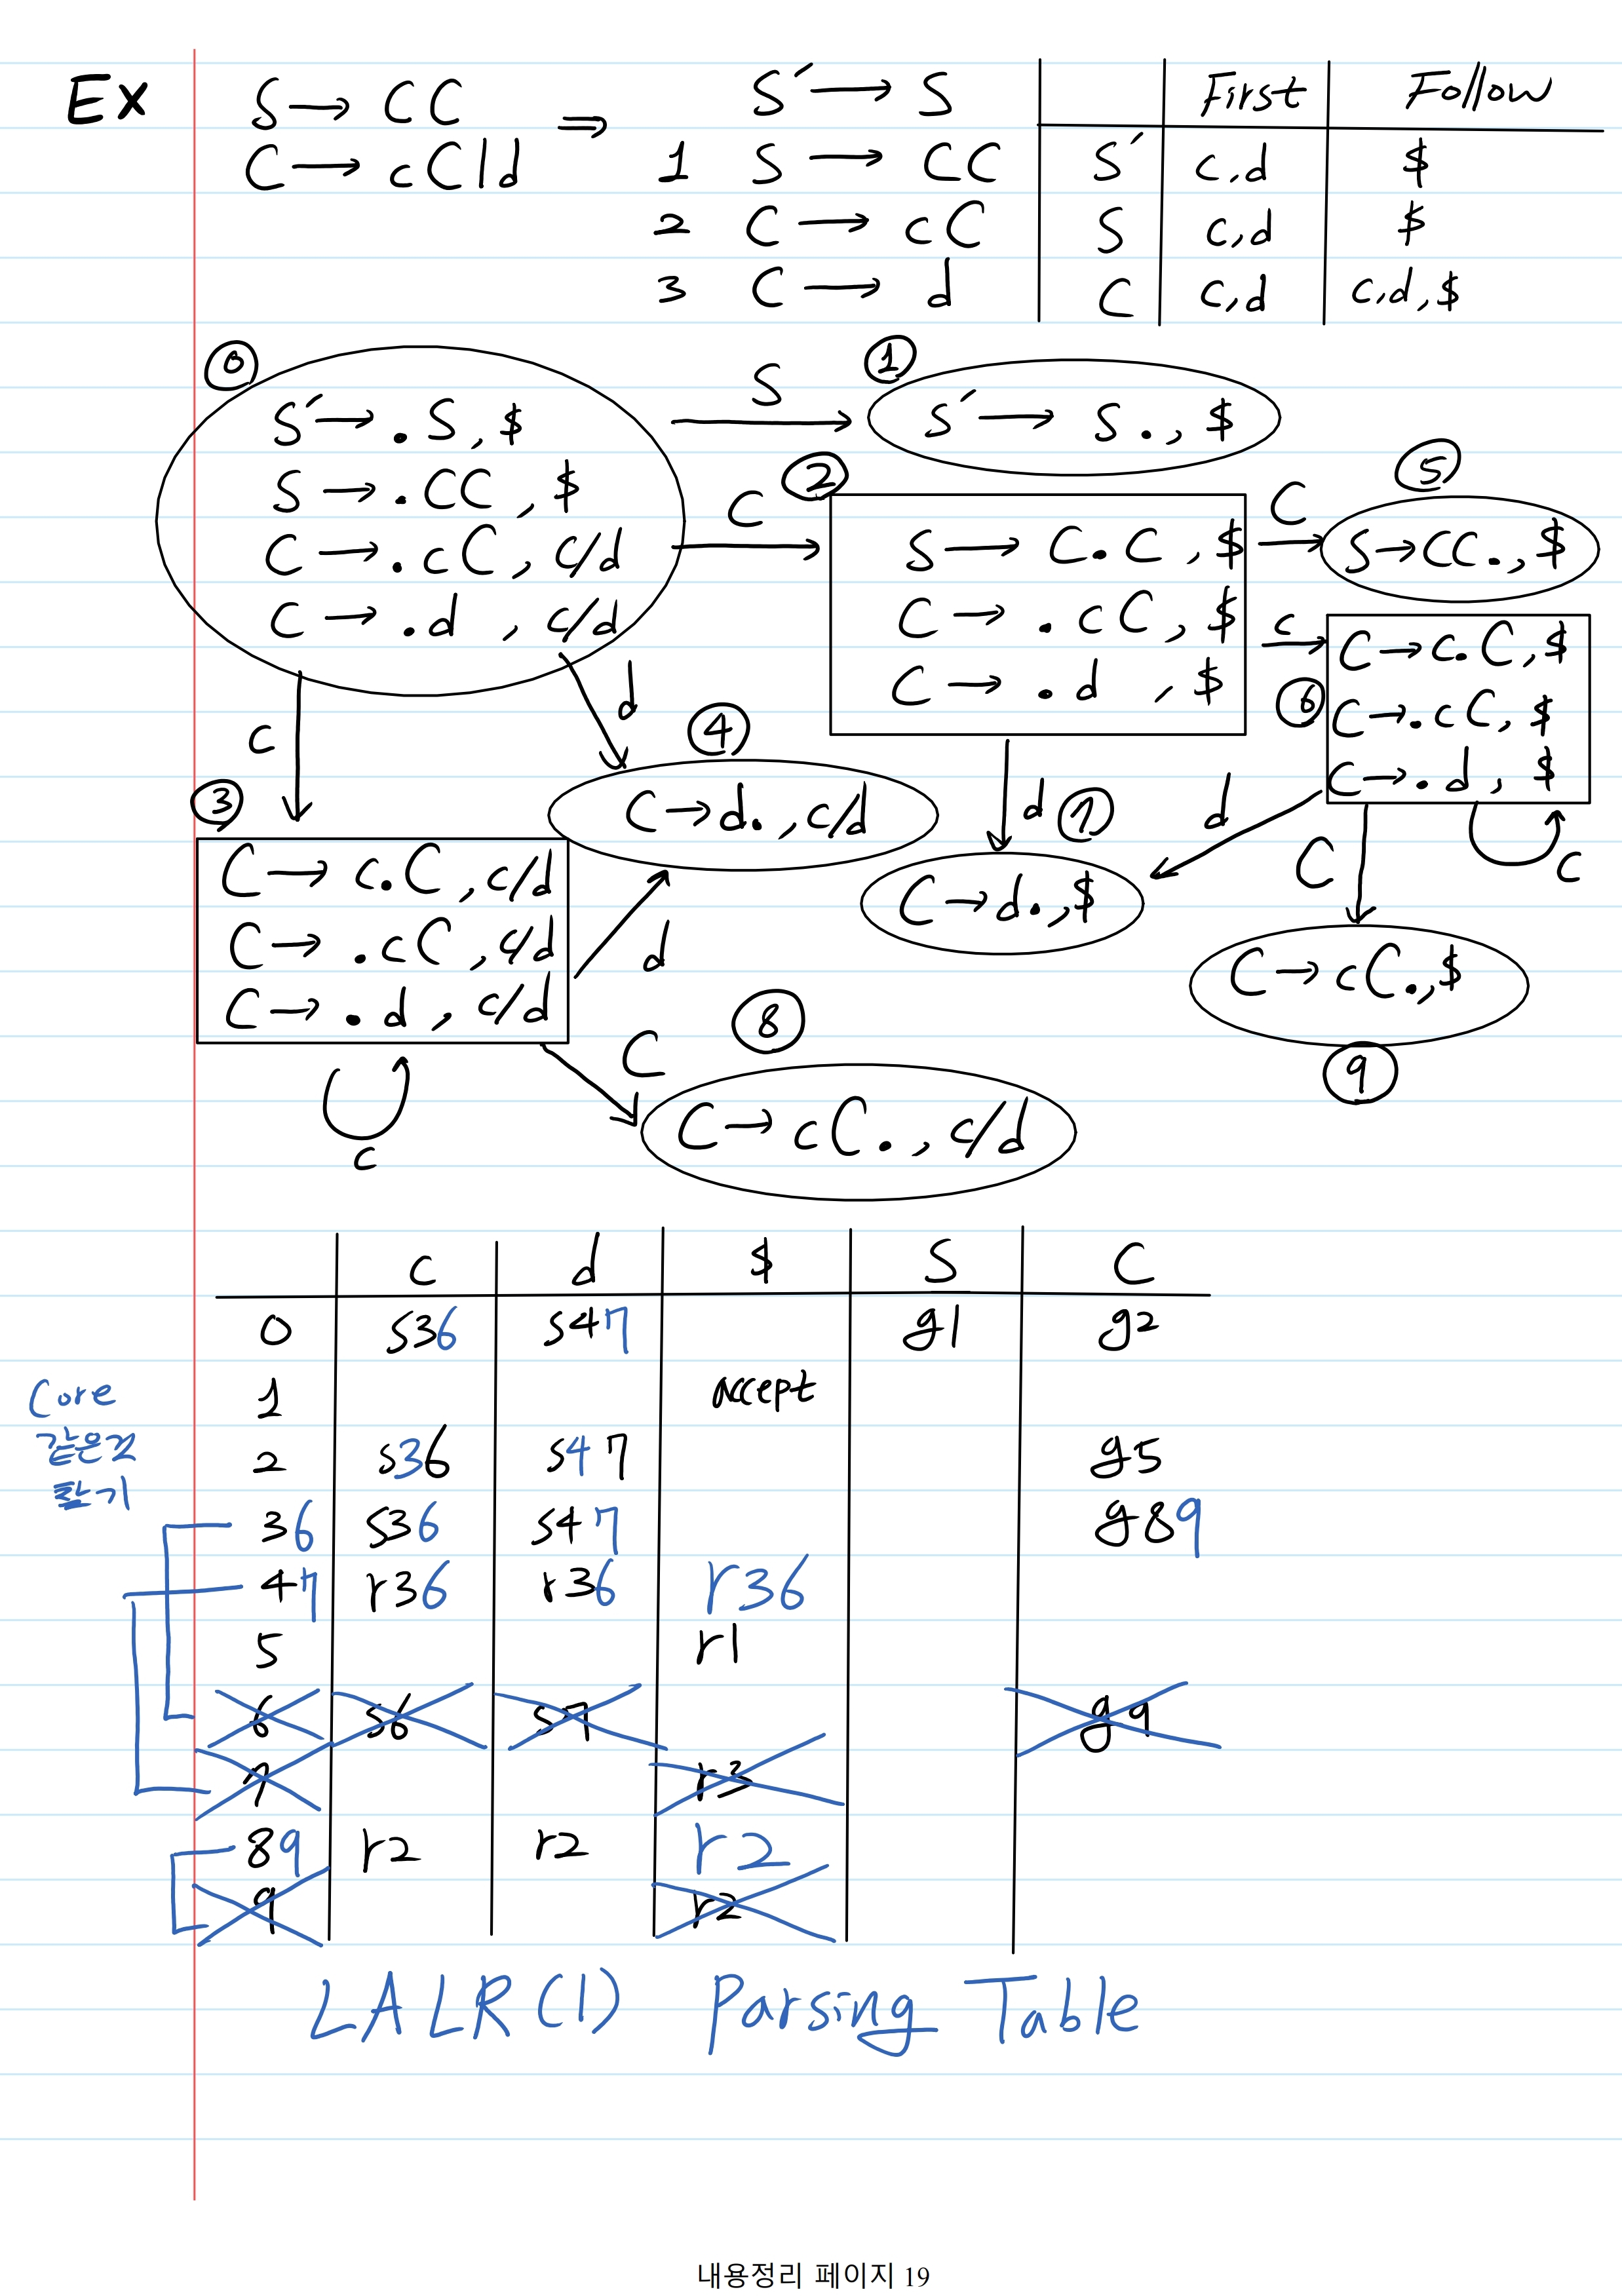 Ex S → CC ⇒ S′ → S First Follow
C → cC|d 1 S → CC S′ c,d $
2 C → cC S c,d $
3 C → d C c,d c,d,$
0
S′ → .S, $
S → .CC, $
C → .cC, c/d
C → .d, c/d
S
1
S′ → S., $
C
2
S → C.C, $
C → .cC, $
C → .d, $
C
5
S → CC., $
c
6
C → c.C, $
C → .cC, $
C → .d, $
c
3
C → c.C, c/d
C → .cC, c/d
C → .d, c/d
c
d
4
C → d., c/d
d
d
7
C → d., $
d
C
c
9
C → cC., $
C
8
C → cC., c/d
c d $ S C
0 s36 s47 g1 g2
1 Accept
2 s36 s47 g5
36 s36 s47 g89
47 r36 r36 r36
5 r1
6 s6 s7 g9
7 r3
89 r2 r2 r2
9 r2
Core
같은것
찾기
LALR(1) Parsing Table
내용정리 페이지 19